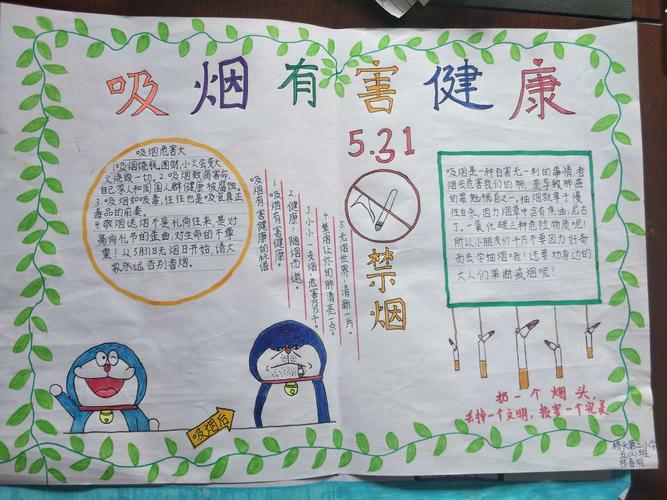 吸烟有害健康
5.31
禁烟
吸烟危害大
1.吸烟烧钱,图财,小火会变大
火烧毁一切。2.吸烟致病害命,
自己家人和周围人群健康被腐蚀。
3.吸烟如吸毒,往往也是吸食真正
毒品的前奏。
4.敬烟送烟不是礼尚往来,是对
高尚礼节的歪曲,对生命的不尊
重!从5月31日无烟日开始,请大
家永远告别香烟。
吸烟有害健康的标语
1.吸烟有害健康。
2.健康,随烟而逝。
3.小小一支烟,危害万万千。
4.禁烟让你的肺清亮一点。
5.无烟世界,清新一片。
吸烟是一种百害无一利的事情,者
烟会危害我们的肺,是导致肺癌
的罪魁祸首之一。抽烟就等于慢
性自杀,因为烟草中含有焦油,尼古
丁,一氧化碳三种危险物质呢!
所以小朋友们千万不要因为好奇
而去学抽烟哦!还要劝身边的
大人们果断戒烟呢!
吸烟后
扔一个烟头,
丢掉一个文明,毁害一个完美
第二小学
五(2)班